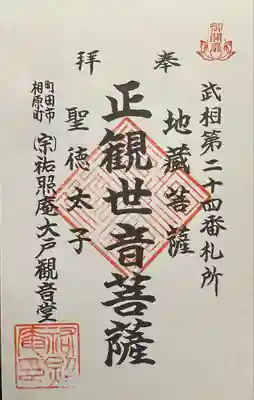 奉拝
武相第二十四番札所
地蔵菩薩
正観世音菩薩
聖徳太子
町田市
相原町
㈪祐照庵大戸観音堂